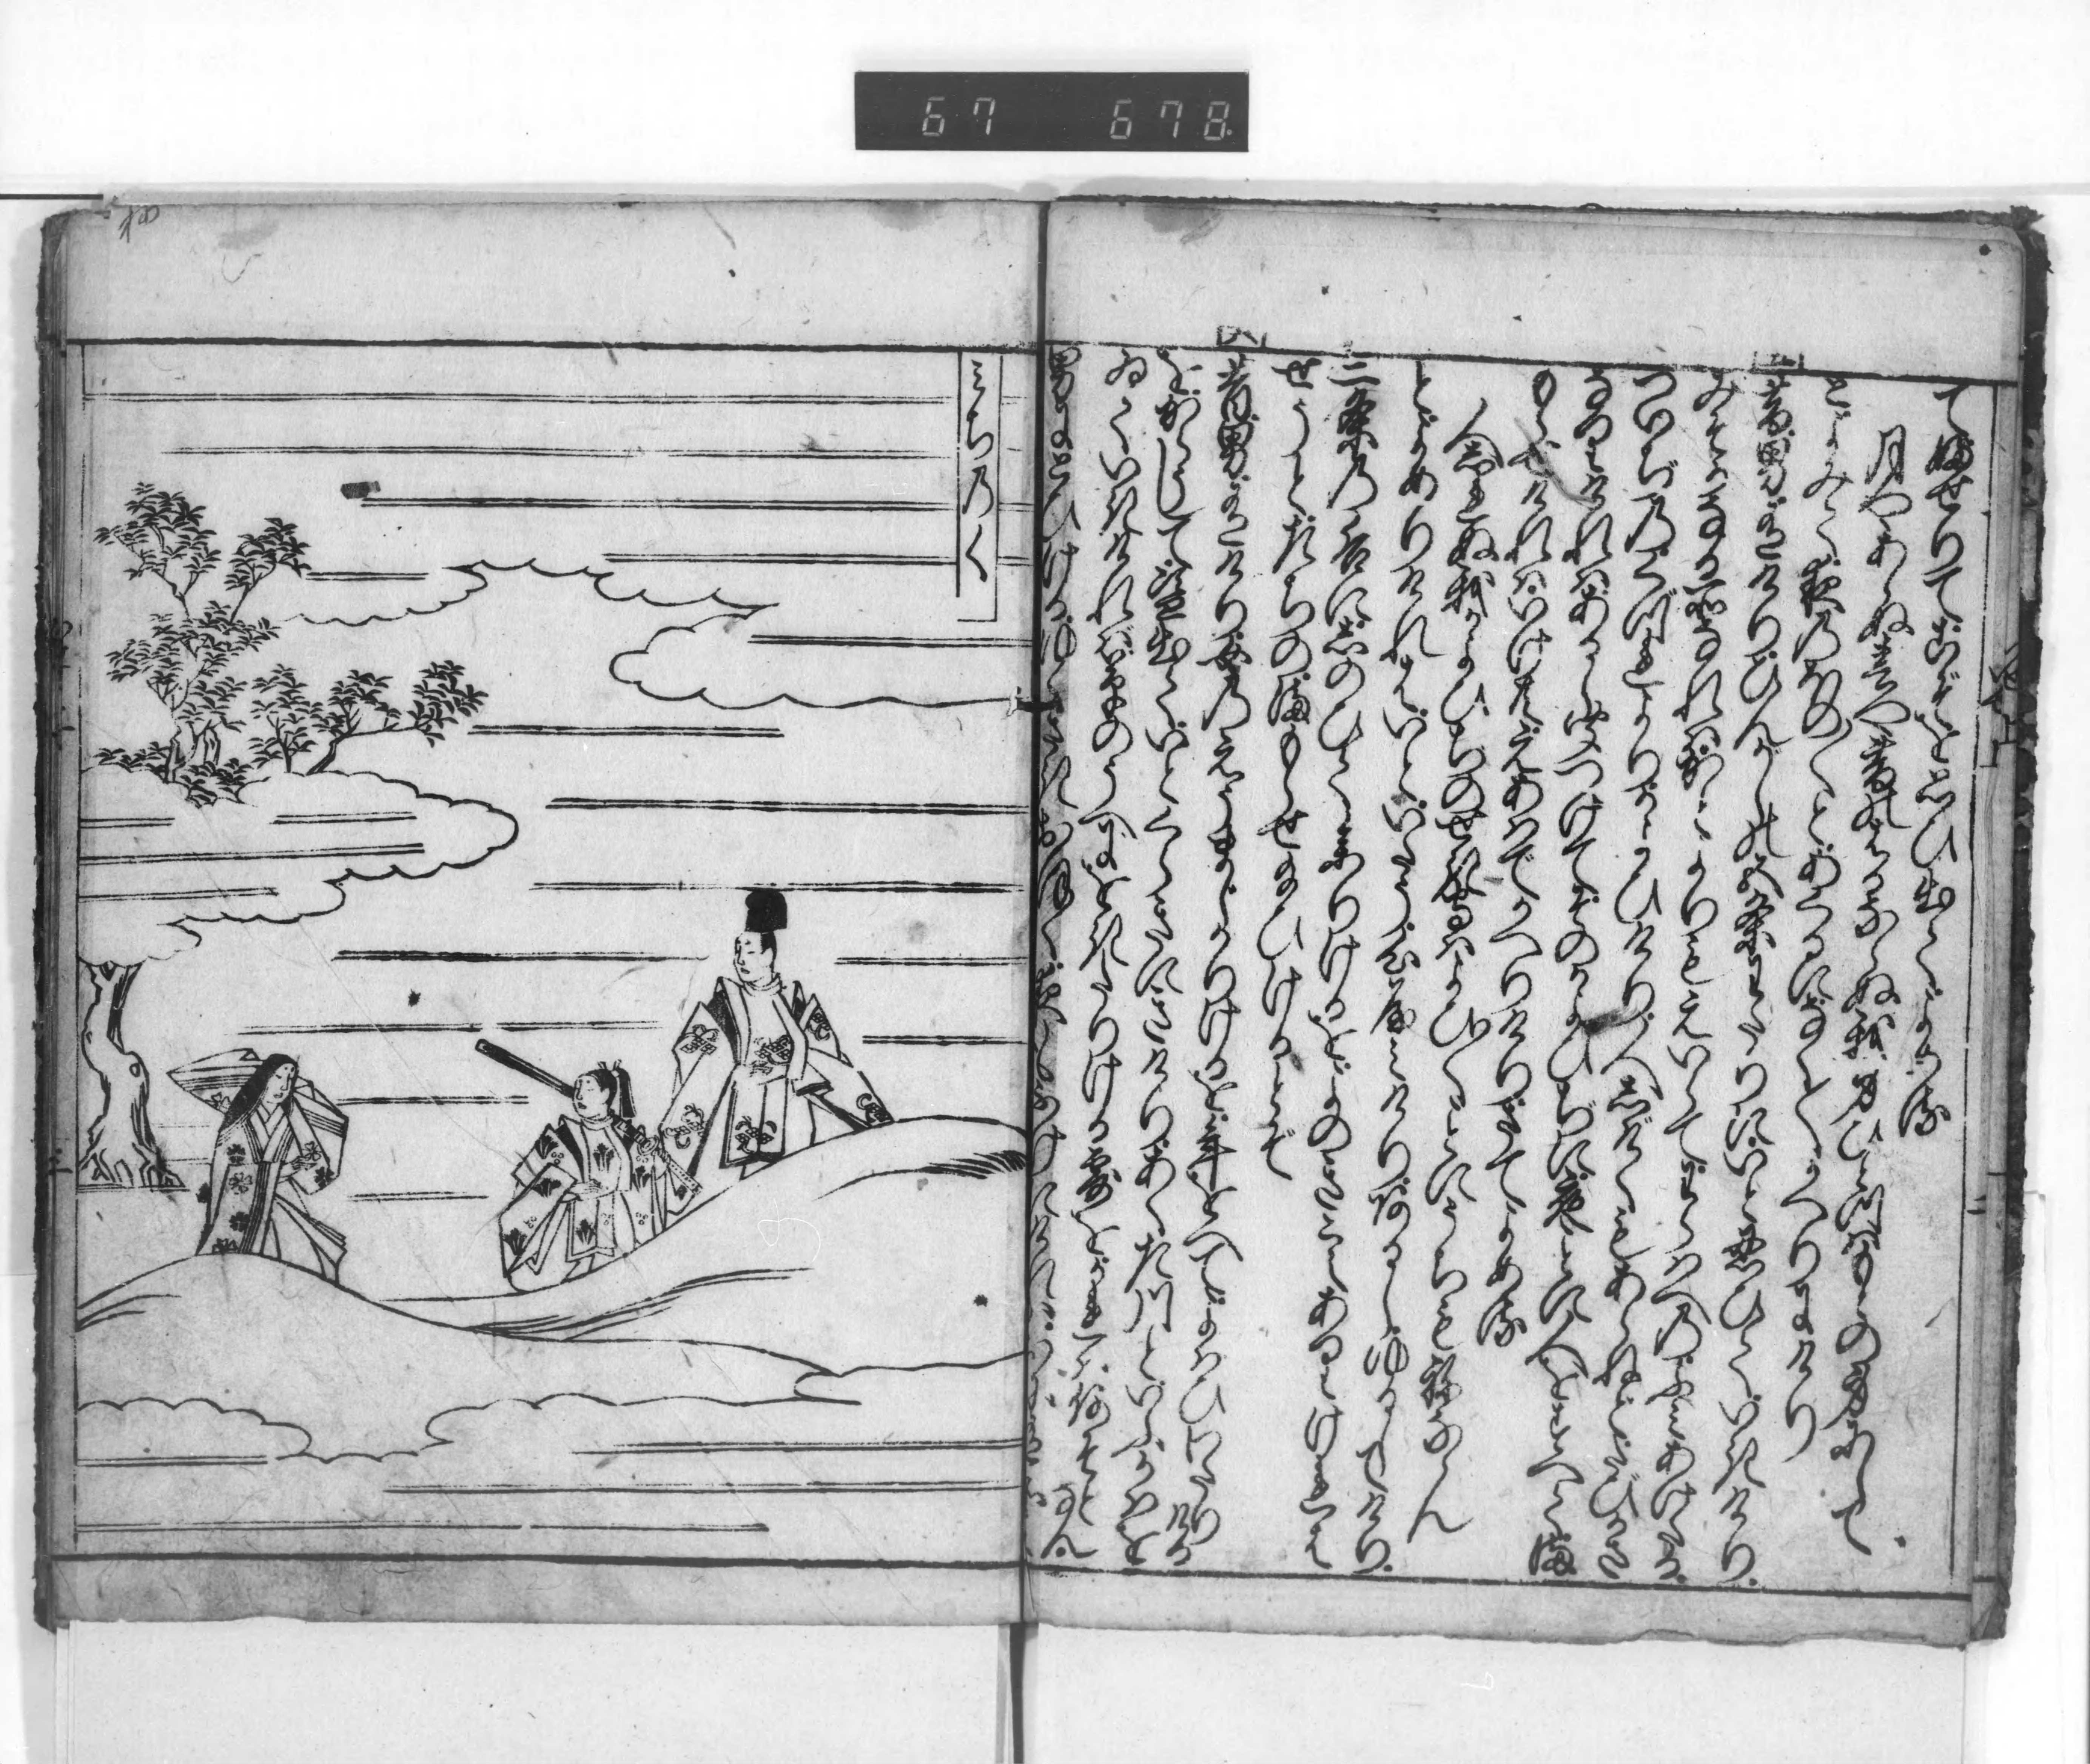 67 678
て ふせりてこぞを思ひ出てよめる
月やあらぬ春や昔の春ならぬ我身ひとつはもとの身にして
とよみて夜のほの〱とあくるになく〱かへりにけり
五
昔男有けりひんがしの五条わたりにいと忍びていきけり
みそかなる所なればかどよりもえいらでわらはべのふみあけたる
ついぢのくづれよりかよひけり人しげくもあらねどたびかさ
なりければあるじきゝつけてそのかよひぢに夜ごとに人をすへてま
もらせければいけどもえあはでかへりけりさてよめる
人しれぬ我かよひぢの関守はよひ〱ごとにうちもねなゝん
とよめりければいといたう心やみけりあるじゆるしてけり
二条の后に忍びてまいりけるを世のきこえありければ
せうとたちのまもらせ給ひけるとぞ
六
昔男有けり女のえうまじかりけるを年をへてよばひわたりける
をからうじてぬすみ出ていとくらきにきけりあくた川といふ川を
ゐていきければ草のうへにをきたりける露をかれは何ぞと
みちのく